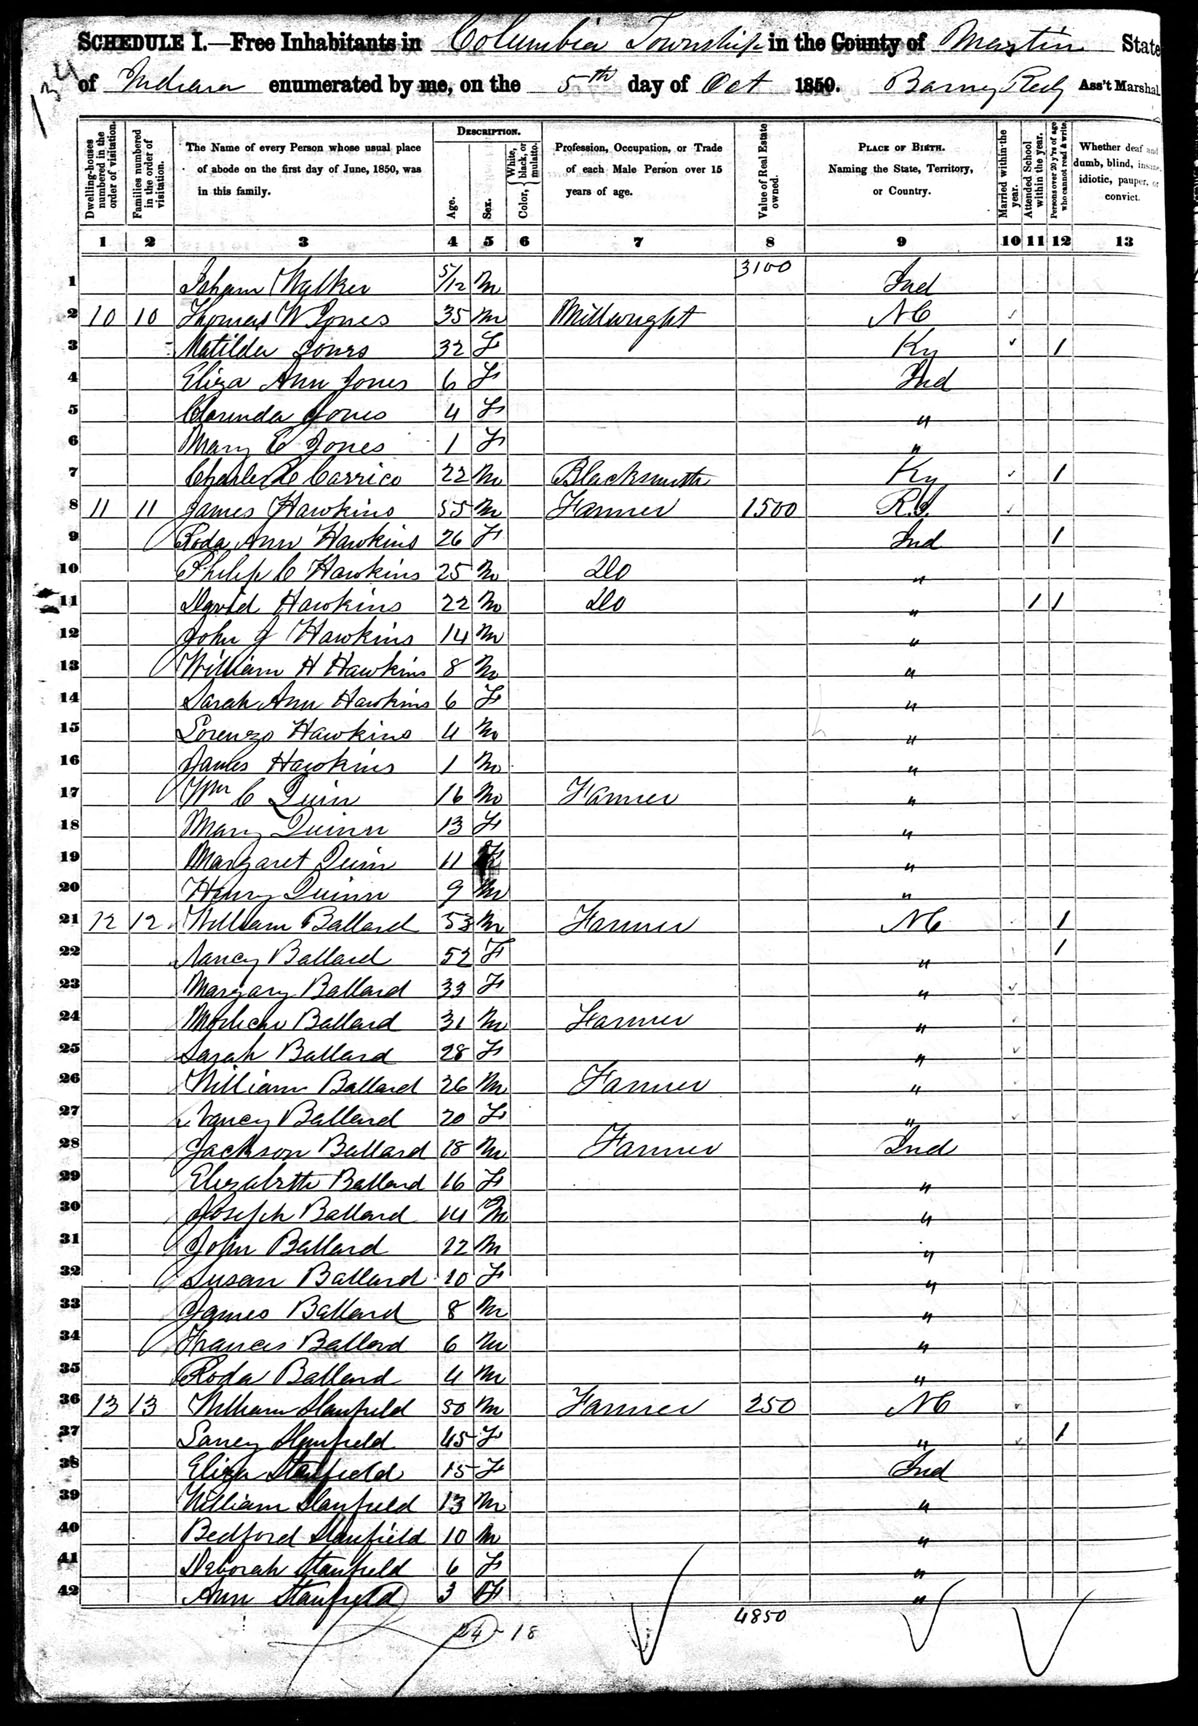 SCHEDULE I.—Free Inhabitants in Columbia Township in the County of Martin State
of Indiana enumerated by me, on the 5th day of Oct 1850. Barny Ass't Marshal.
134
Dwelling-houses numbered in the order of visitation.
Families numbered in the order of visitation.
The Name of every Person whose usual place of abode on the first day of June, 1850, was in this family.
DESCRIPTION.
Age.
Sex.
Color, White, black, or mulatto.
Profession, Occupation, or Trade of each Male Person over 15 years of age.
Value of Real Estate owned.
PLACE OF BIRTH. Naming the State, Territory, or Country.
Married within the year.
Attended School within the year.
Persons over 20 y'rs of age who cannot read & write.
Whether deaf and dumb, blind, insane, idiotic, pauper, or convict.
1 2 3 4 5 6 7 8 9 10 11 12 13
1 Isham Walker 5/12 M 3100 Ind
2 10 10 Thomas W Jones 35 M Millwright NC
3 Matilda Jones 32 F Ky 1
4 Eliza Ann Jones 6 F Ind
5 Clarinda Jones 4 F "
6 Mary C Jones 1 F "
7 Charles Carrico 22 M Blacksmith Ky 1
8 11 11 James Hawkins 55 M Farmer 1500 R.I.
9 Roda Ann Hawkins 26 F Ind 1
10 Philip C Hawkins 25 M Do "
11 David Hawkins 22 M Do " 1 1
12 John J Hawkins 14 M "
13 William H Hawkins 8 M "
14 Sarah Ann Hawkins 6 F "
15 Lorenzo Hawkins 4 M "
16 James Hawkins 1 M "
17 Wm C Quin 16 M Farmer "
18 Mary Quinn 13 F "
19 Margaret Quin 11 F "
20 Henry Quinn 9 M "
21 12 12 William Ballard 53 M Farmer NC 1
22 Nancy Ballard 52 F " 1
23 Margary Ballard 33 F "
24 Ballard 31 M Farmer "
25 Sarah Ballard 28 F "
26 William Ballard 26 M Farmer "
27 Nancy Ballard 20 F "
28 Jackson Ballard 18 M Farmer Ind
29 Elizabeth Ballard 16 F "
30 Joseph Ballard 14 M "
31 John Ballard 12 M "
32 Susan Ballard 10 F "
33 James Ballard 8 M "
34 Francis Ballard 6 M "
35 Roda Ballard 4 M "
36 13 13 William Stanfield 50 M Farmer 250 NC
37 Stanfield 45 F " 1
38 Eliza Stanfield 15 F Ind
39 William Stanfield 13 M "
40 Bedford Stanfield 10 M "
41 Deborah Stanfield 6 F "
42 Ann Stanfield 3 F "
24 - 18 4850